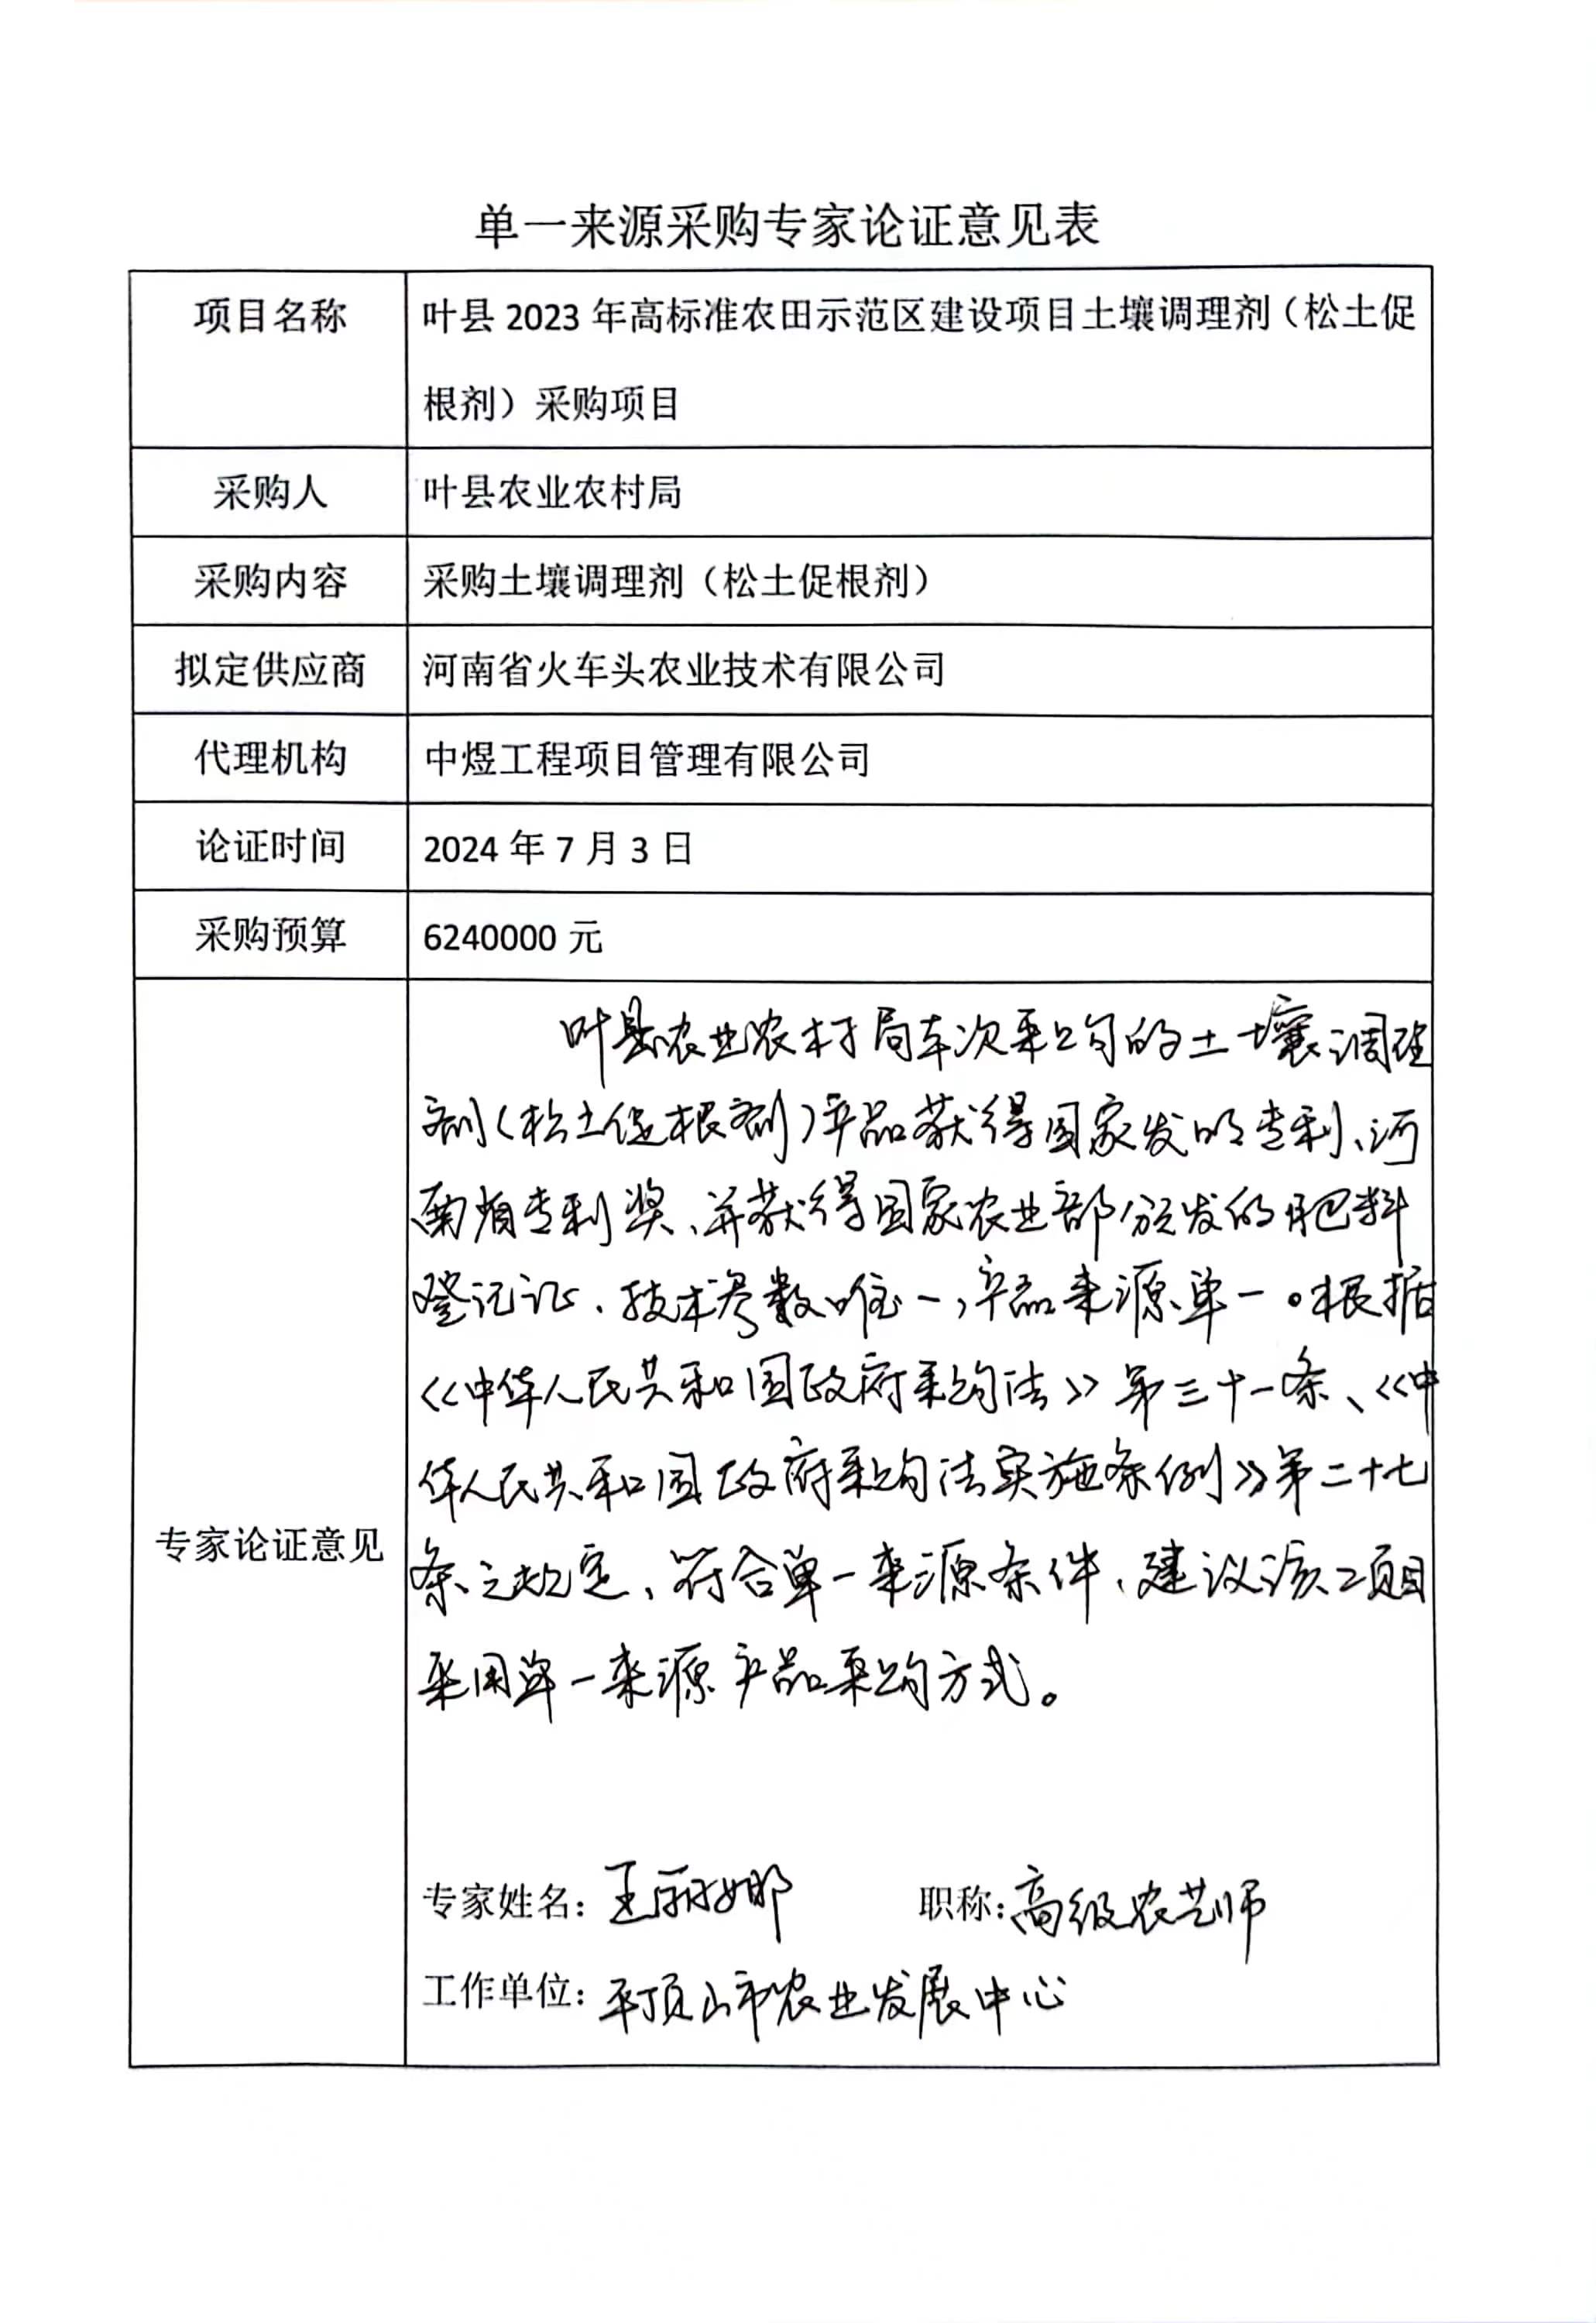 单一来源采购专家论证意见表
项目名称
叶县 2023 年高标准农田示范区建设项目土壤调理剂（松土促
根剂）采购项目
采购人
叶县农业农村局
采购内容
采购土壤调理剂（松土促根剂）
拟定供应商
河南省火车头农业技术有限公司
代理机构
中煜工程项目管理有限公司
论证时间
2024 年 7 月 3 日
采购预算
6240000 元
专家论证意见
叶县农业农村局本次采购的土壤调理
剂（松土促根剂）产品获得国家发明专利、河
南省专利奖、并获得国家农业部颁发的肥料
登记证、技术参数唯一，产品来源单一。根据
《中华人民共和国政府采购法》第三十一条、《中
华人民共和国政府采购法实施条例》第二十七
条之规定、符合单一来源条件、建议该项目
采用单一来源产品采购方式。
专家姓名：王丽娜 职称：高级农艺师
工作单位：平顶山市农业发展中心